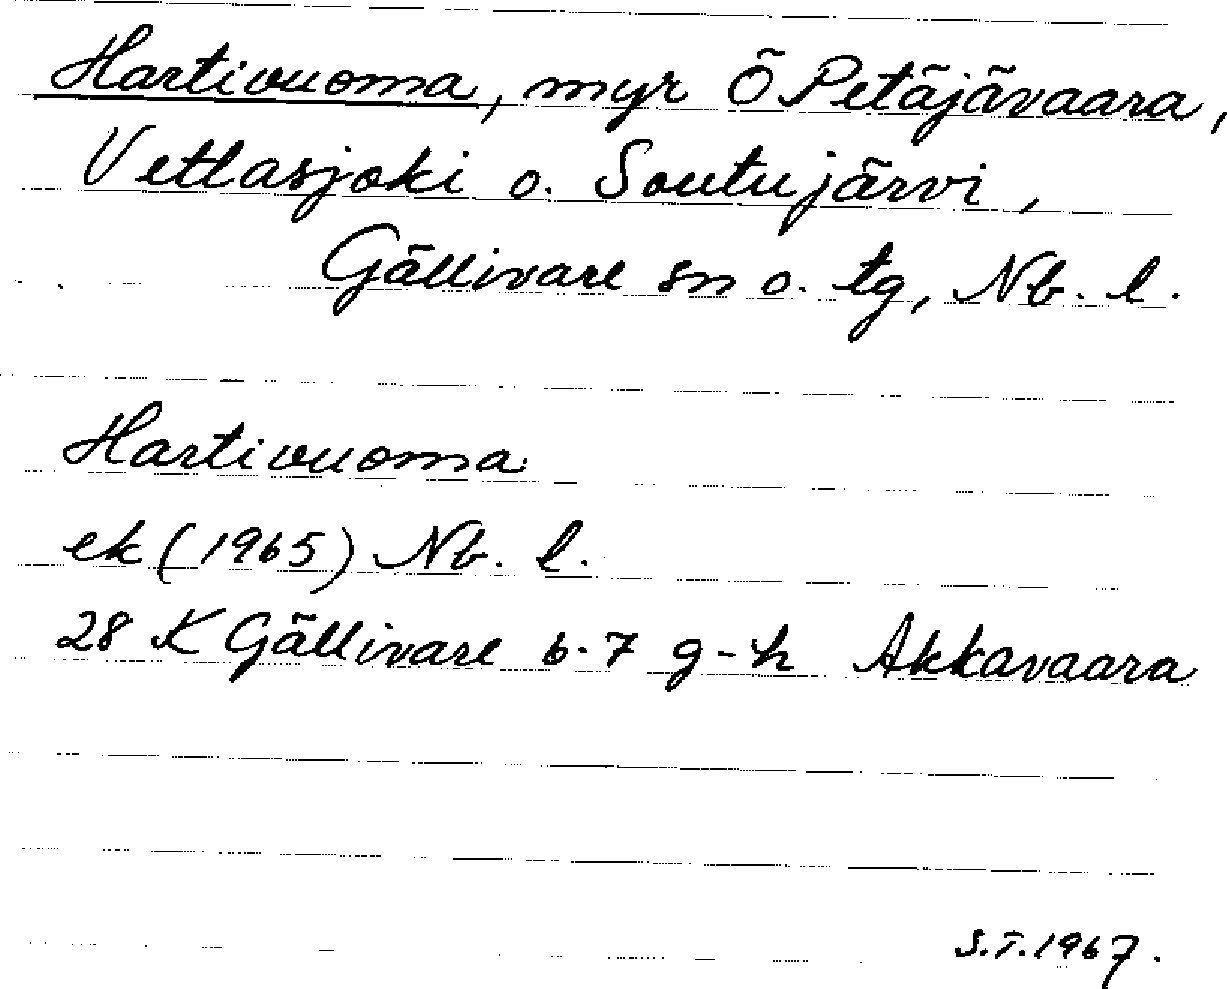 Hartivuoma, myr Ö Petäjävaara,
Vettasjoki o. Soutujärvi,
Gällivare sn o. tg, Nb. l.
Hartivuoma
ek (1965) Nb. l.
28 K Gällivare 6-7 g-h Akkavaara
S.T. 1967.